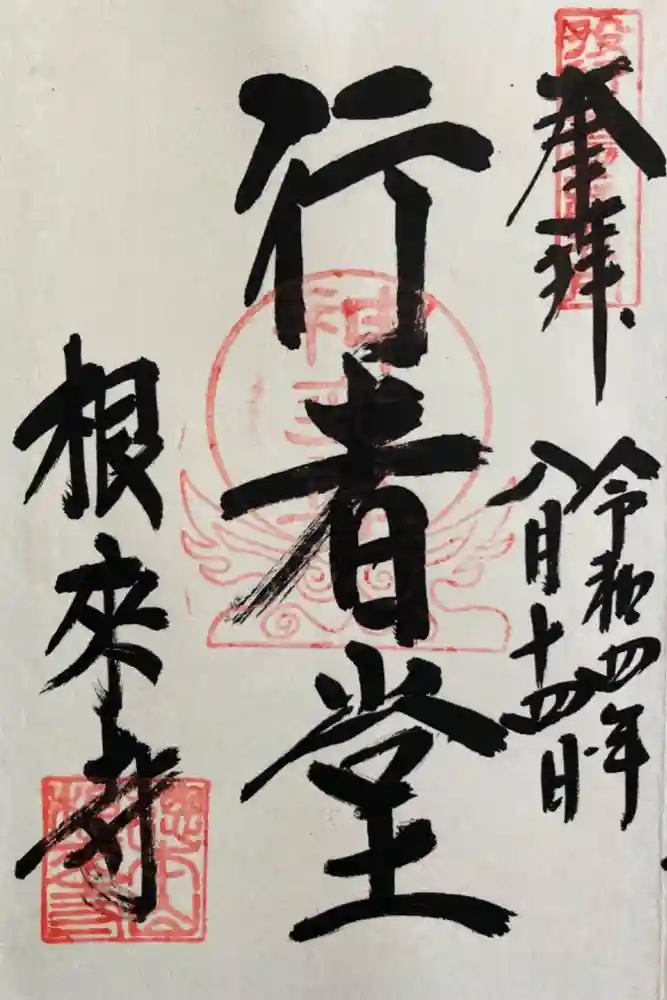 奉拝
令和四年
八月十四日
行者堂
根來寺